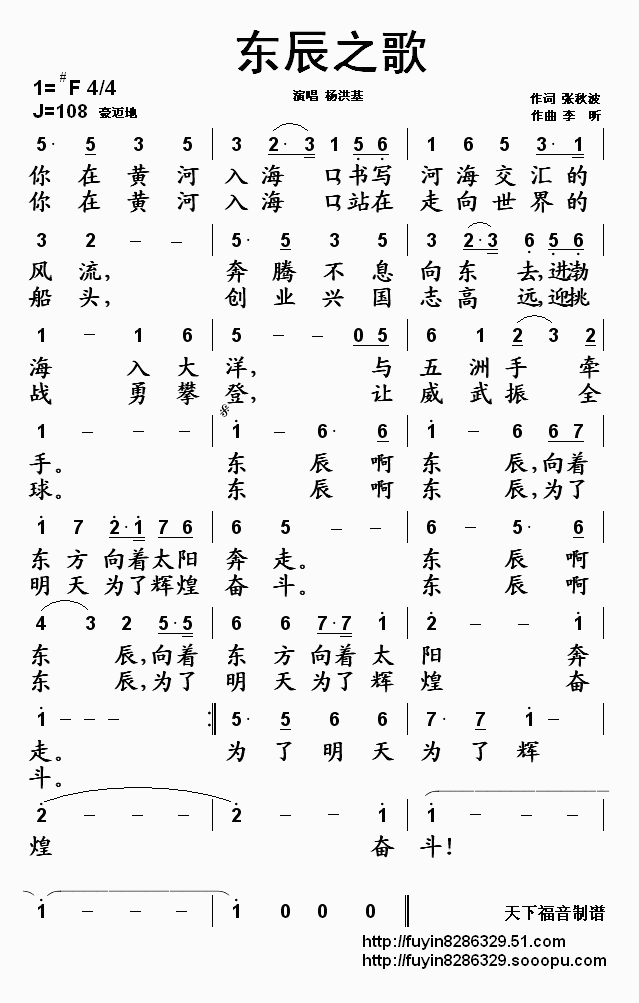 东辰之歌
1=#F 4/4
演唱 杨洪基
作词 张秋波
J=108 豪迈地
作曲 李 昕
5· 5 3 5 | 3 2·3 1 5 6 | 1 6 5 3·1
你在黄河 入海 口书写 河海交汇的
你在黄河 入海 口站在 走向世界的
3 2 – – | 5· 5 3 5 | 3 2·3 6 5 6
风流, 奔腾不息 向东 去,进渤
船头, 创业兴国 志高 远,迎挑
1 – 1 6 | 5 – – 0 5 | 6 1 2 3 2
海 入大 洋, 与 五洲手 牵
战 勇攀 登, 让 威武振 全
1 – – – | 1 – 6· 6 | 1 – – 6 6 7
手。 东 辰啊 东 辰,向着
球。 东 辰啊 东 辰,为了
1 7 2·1 7 6 | 6 5 – – | 6 – 5· 6
东方向着太阳 奔走。 东 辰啊
明天为了辉煌 奋斗。 东 辰啊
4 3 2 5·5 | 6 6 7·7 1 | 2 – – 1
东 辰,向着 东方向着太 阳 奔
东 辰,为了 明天为了辉 煌 奋
1 – – – :‖ 5· 5 6 6 | 7· 7 1
走。 为了明天 为了辉
斗。
2 – – – | 2 – – 1 | 1 – – –
煌 奋 斗!
1 – – – | 1 0 0 0 ‖
天下福音制谱
http://fuyin8286329.51.com
http://fuyin8286329.sooopu.com